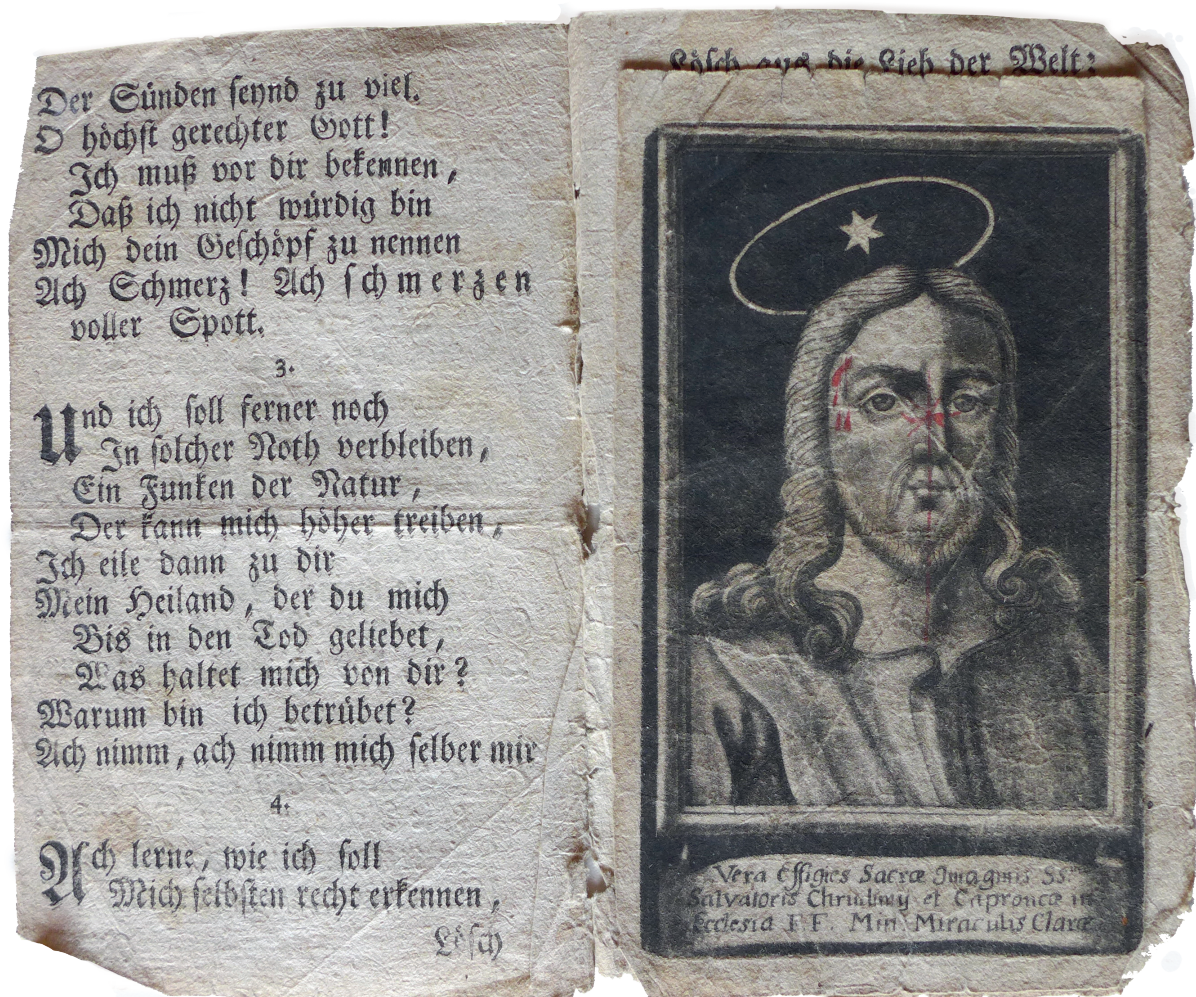 Der Sünden seynd zu viel.
O höchst gerechter Gott!
Ich muß vor dir bekennen,
Daß ich nicht würdig bin
Mich dein Geschöpf zu nennen
Ach Schmerz! Ach schmerzen
voller Spott.
3.
Und ich soll ferner noch
In solcher Noth verbleiben,
Ein Funken der Natur,
Der kann mich höher treiben,
Ich eile dann zu dir
Mein Heiland, der du mich
Bis in den Tod geliebet,
Was haltet mich von dir?
Warum bin ich betrübet?
Ach nimm, ach nimm mich selber mir
4.
Ach lerne, wie ich soll
Mich selbsten recht erkennen,
Lösch
Lösch aus die Lieb der Welt:
Vera Effigies Sacræ Imaginis SS.
Salvatoris Chrudimij et Caproncæ in
Ecclesia F F. Min Miraculis Claræ